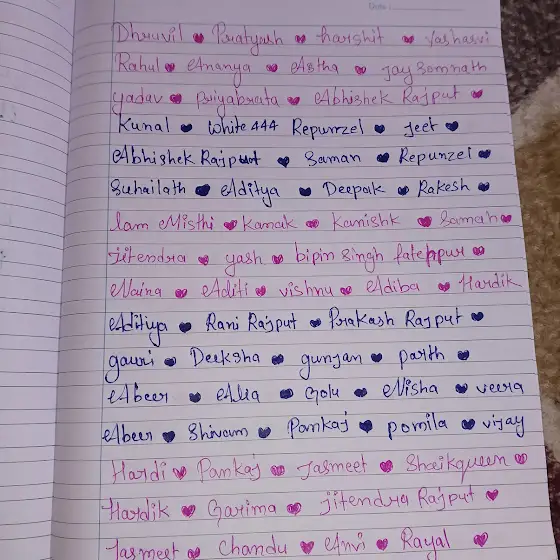 Dhruvil ♥ Pratyush ♥ harshit ♥ Yashasvi
Rahul ♥ Ananya ♥ Astha ♥ Jay Somnath
yadav ♥ priyabrata ♥ Abhishek Rajput ♥
Kunal ♥ White 444 Repunzel ♥ Jeet ♥
Abhishek Rajput ♥ Saman ♥ Repunzel ♥
Suhailath ♥ Aditya ♥ Deepak ♥ Rakesh ♥
Iam Misthi ♥ Kanak ♥ Kanishk ♥ Samah ♥
jitendra ♥ yash ♥ bipin singh fatehpur ♥
Naina ♥ Aditi ♥ vishnu ♥ Adiba ♥ Hardik
Aditiya ♥ Rani Rajput ♥ Prakash Rajput ♥
gauri ♥ Deeksha ♥ gunjan ♥ parth ♥
Abeer ♥ Alia ♥ Golu ♥ Nisha ♥ veera
Abeer ♥ Shivam ♥ Pankaj ♥ pomila ♥ vijay
Hardi ♥ Pankaj ♥ Jasmeet ♥ Shaikqueen ♥
Hardik ♥ Garima ♥ jitendra Rajput ♥
Jasmeet ♥ Chandu ♥ Anvi ♥ Rayal ♥